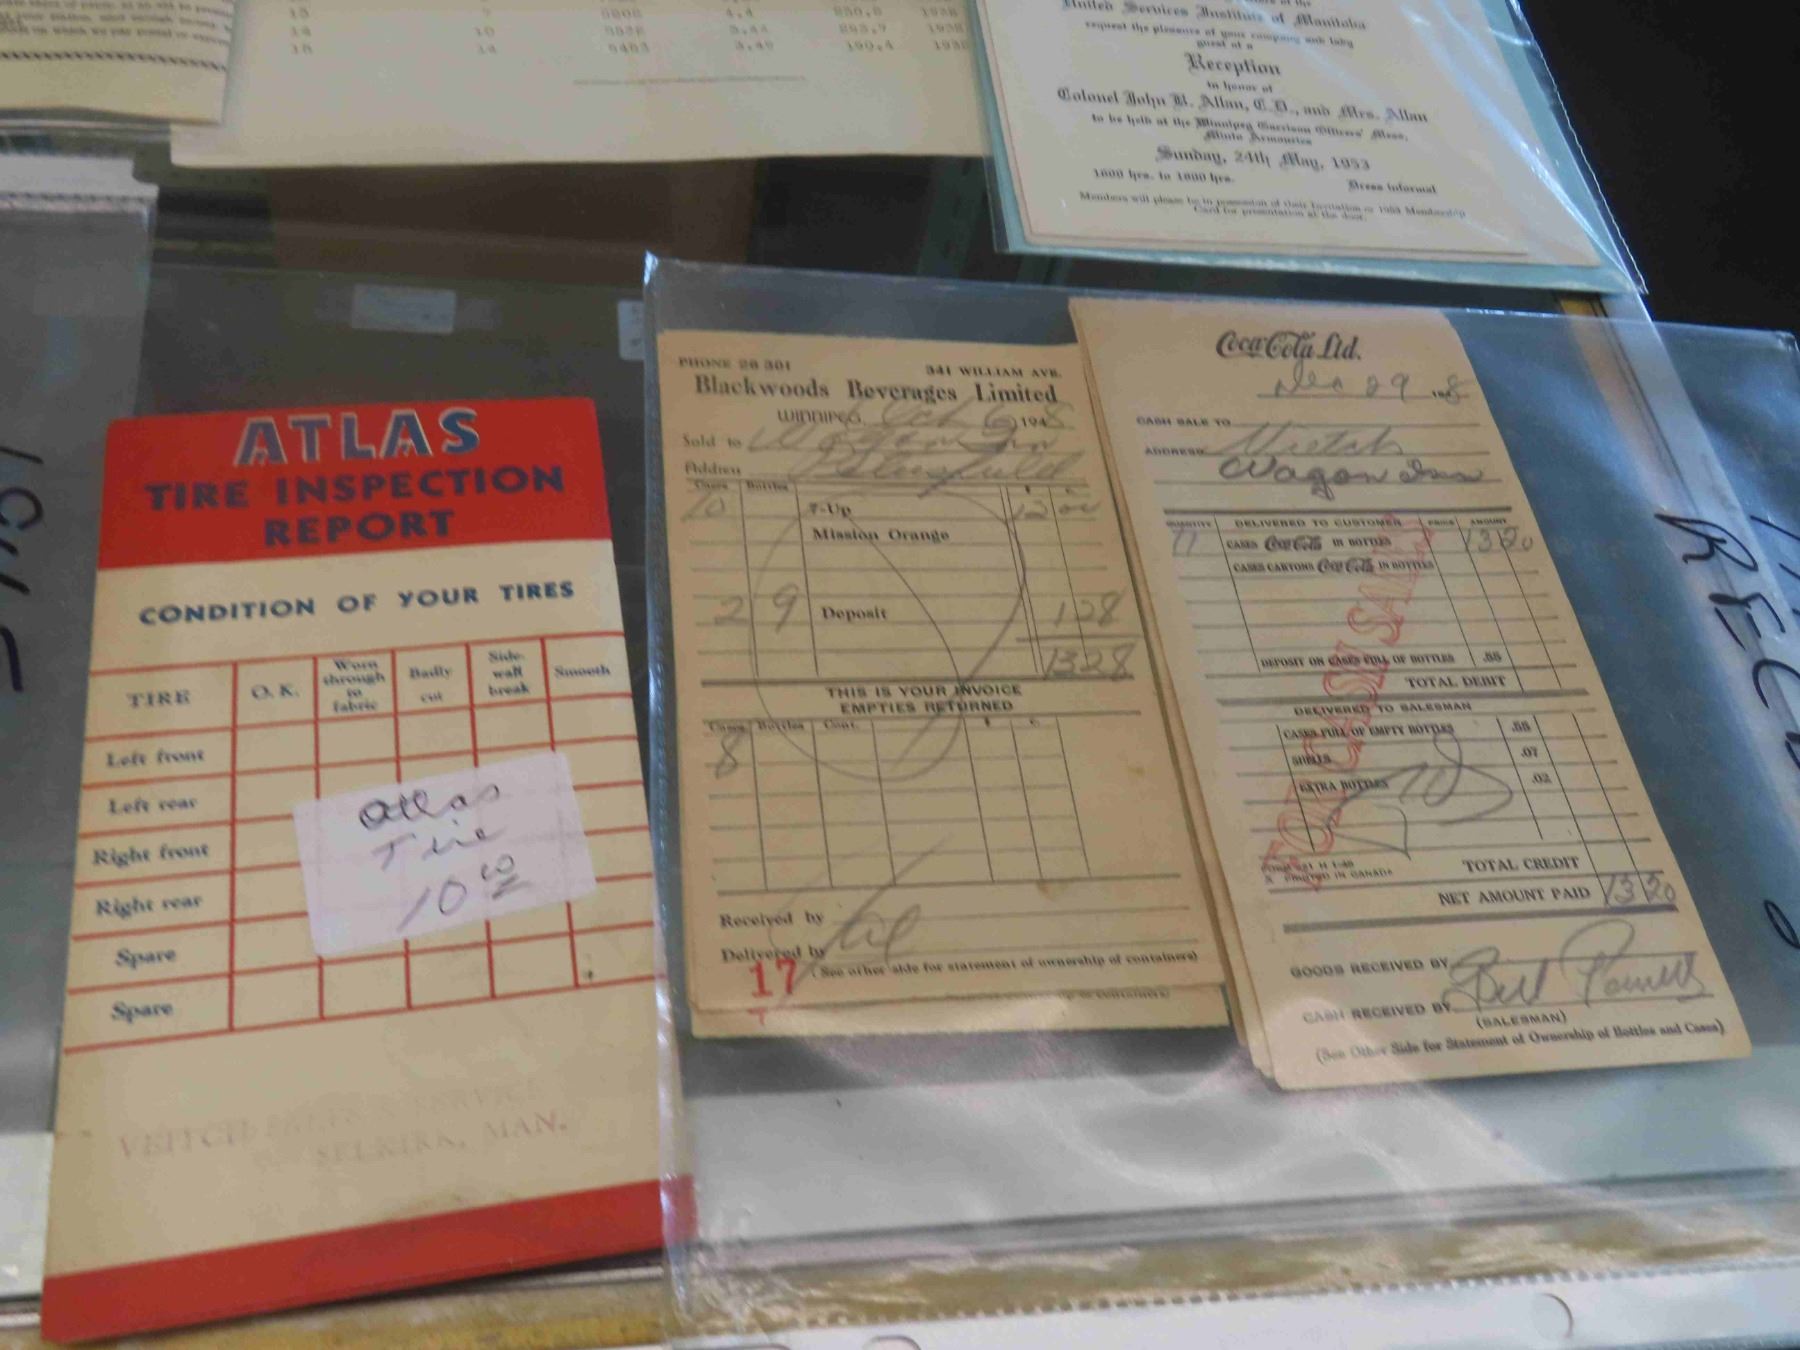 15 7 5808 4.4 250.8 1938
14 10 5538 3.44 1938
15 14 5483 3.49 190.4 1938
United Services Institute of Manitoba
request the pleasure of your company and lady
guest at a
Reception
in honor of
Colonel John R. Allan, C.D., and Mrs. Allan
to be held at the Winnipeg Garrison Officers' Mess,
Minto Armouries
Sunday, 24th May, 1953
1600 hrs. to 1800 hrs. Dress informal
Members will please be in possession of their Invitation or 1953 Membership
Card for presentation at the door.
ATLAS
TIRE INSPECTION
REPORT
CONDITION OF YOUR TIRES
TIRE O.K. Worn through to fabric Badly cut Side-wall break Smooth
Left front
Left rear
Right front
Right rear
Spare
Spare
Atlas
Tire
10 00
VEITCH SALES & SERVICE
SELKIRK, MAN.
PHONE 26 301 341 WILLIAM AVE.
Blackwoods Beverages Limited
WINNIPEG, Oct 6 1948
Sold to Wagon Inn
Address Petersfield
Cases Bottles $ c.
10 7-Up 12 00
Mission Orange
2 9 Deposit 1 28
13 28
THIS IS YOUR INVOICE
EMPTIES RETURNED
Cases Bottles Cont. $ c.
8
Received by
Delivered by
17 (See other side for statement of ownership of containers)
Coca-Cola Ltd.
29 1948
CASH SALE TO
ADDRESS
Wagon Inn
QUANTITY DELIVERED TO CUSTOMER PRICE AMOUNT
11 CASES Coca-Cola IN BOTTLES 13 20
CASES CARTONS Coca-Cola IN BOTTLES
DEPOSIT ON CASES FULL OF BOTTLES .55
TOTAL DEBIT
DELIVERED TO SALESMAN
CASES FULL OF EMPTY BOTTLES .55
SHELLS .07
EXTRA BOTTLES .02
FOR CASH SALES
PRINTED IN CANADA
TOTAL CREDIT
NET AMOUNT PAID 13 20
GOODS RECEIVED BY
CASH RECEIVED BY Bill
(SALESMAN)
(See Other Side for Statement of Ownership of Bottles and Cases)